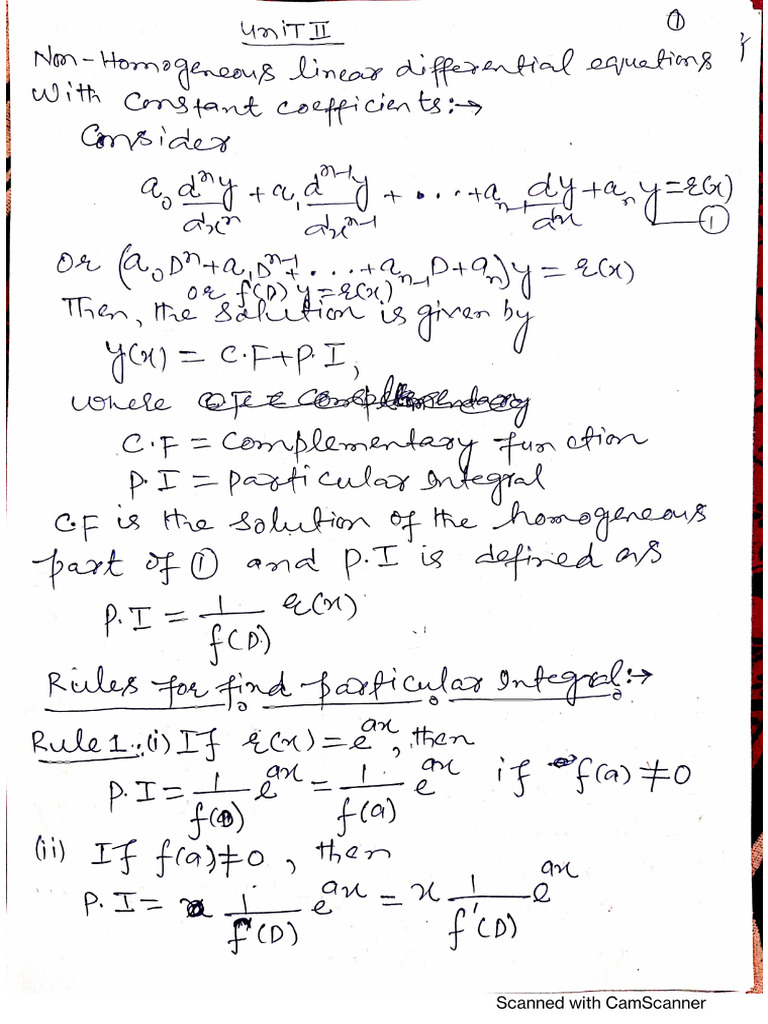 UNIT II
①
Non-Homogeneous linear differential equations
with constant coefficients:→
Consider
a₀ dⁿy/dxⁿ + a₁ dⁿ⁻¹y/dxⁿ⁻¹ + . . . + aₙ₋₁ dy/dx + aₙ y = r(x) —①
or (a₀Dⁿ + a₁Dⁿ⁻¹ + . . . + aₙ₋₁D + aₙ)y = r(x)
or f(D) y = r(x)
Then, the solution is given by
y(x) = C.F + P.I,
where
C.F = Complementary function
P.I = Particular Integral
C.F is the solution of the homogeneous
part of ① and P.I is defined as
P.I = 1/f(D) r(x)
Rules for find particular Integral:→
Rule 1:(i) If r(x) = e^{ax}, then
P.I = 1/f(D) e^{ax} = 1/f(a) e^{ax} if f(a) ≠ 0
(ii) If f(a) ≠ 0, then
P.I = 1/f(D) e^{ax} = x 1/f'(D) e^{ax}
Scanned with CamScanner